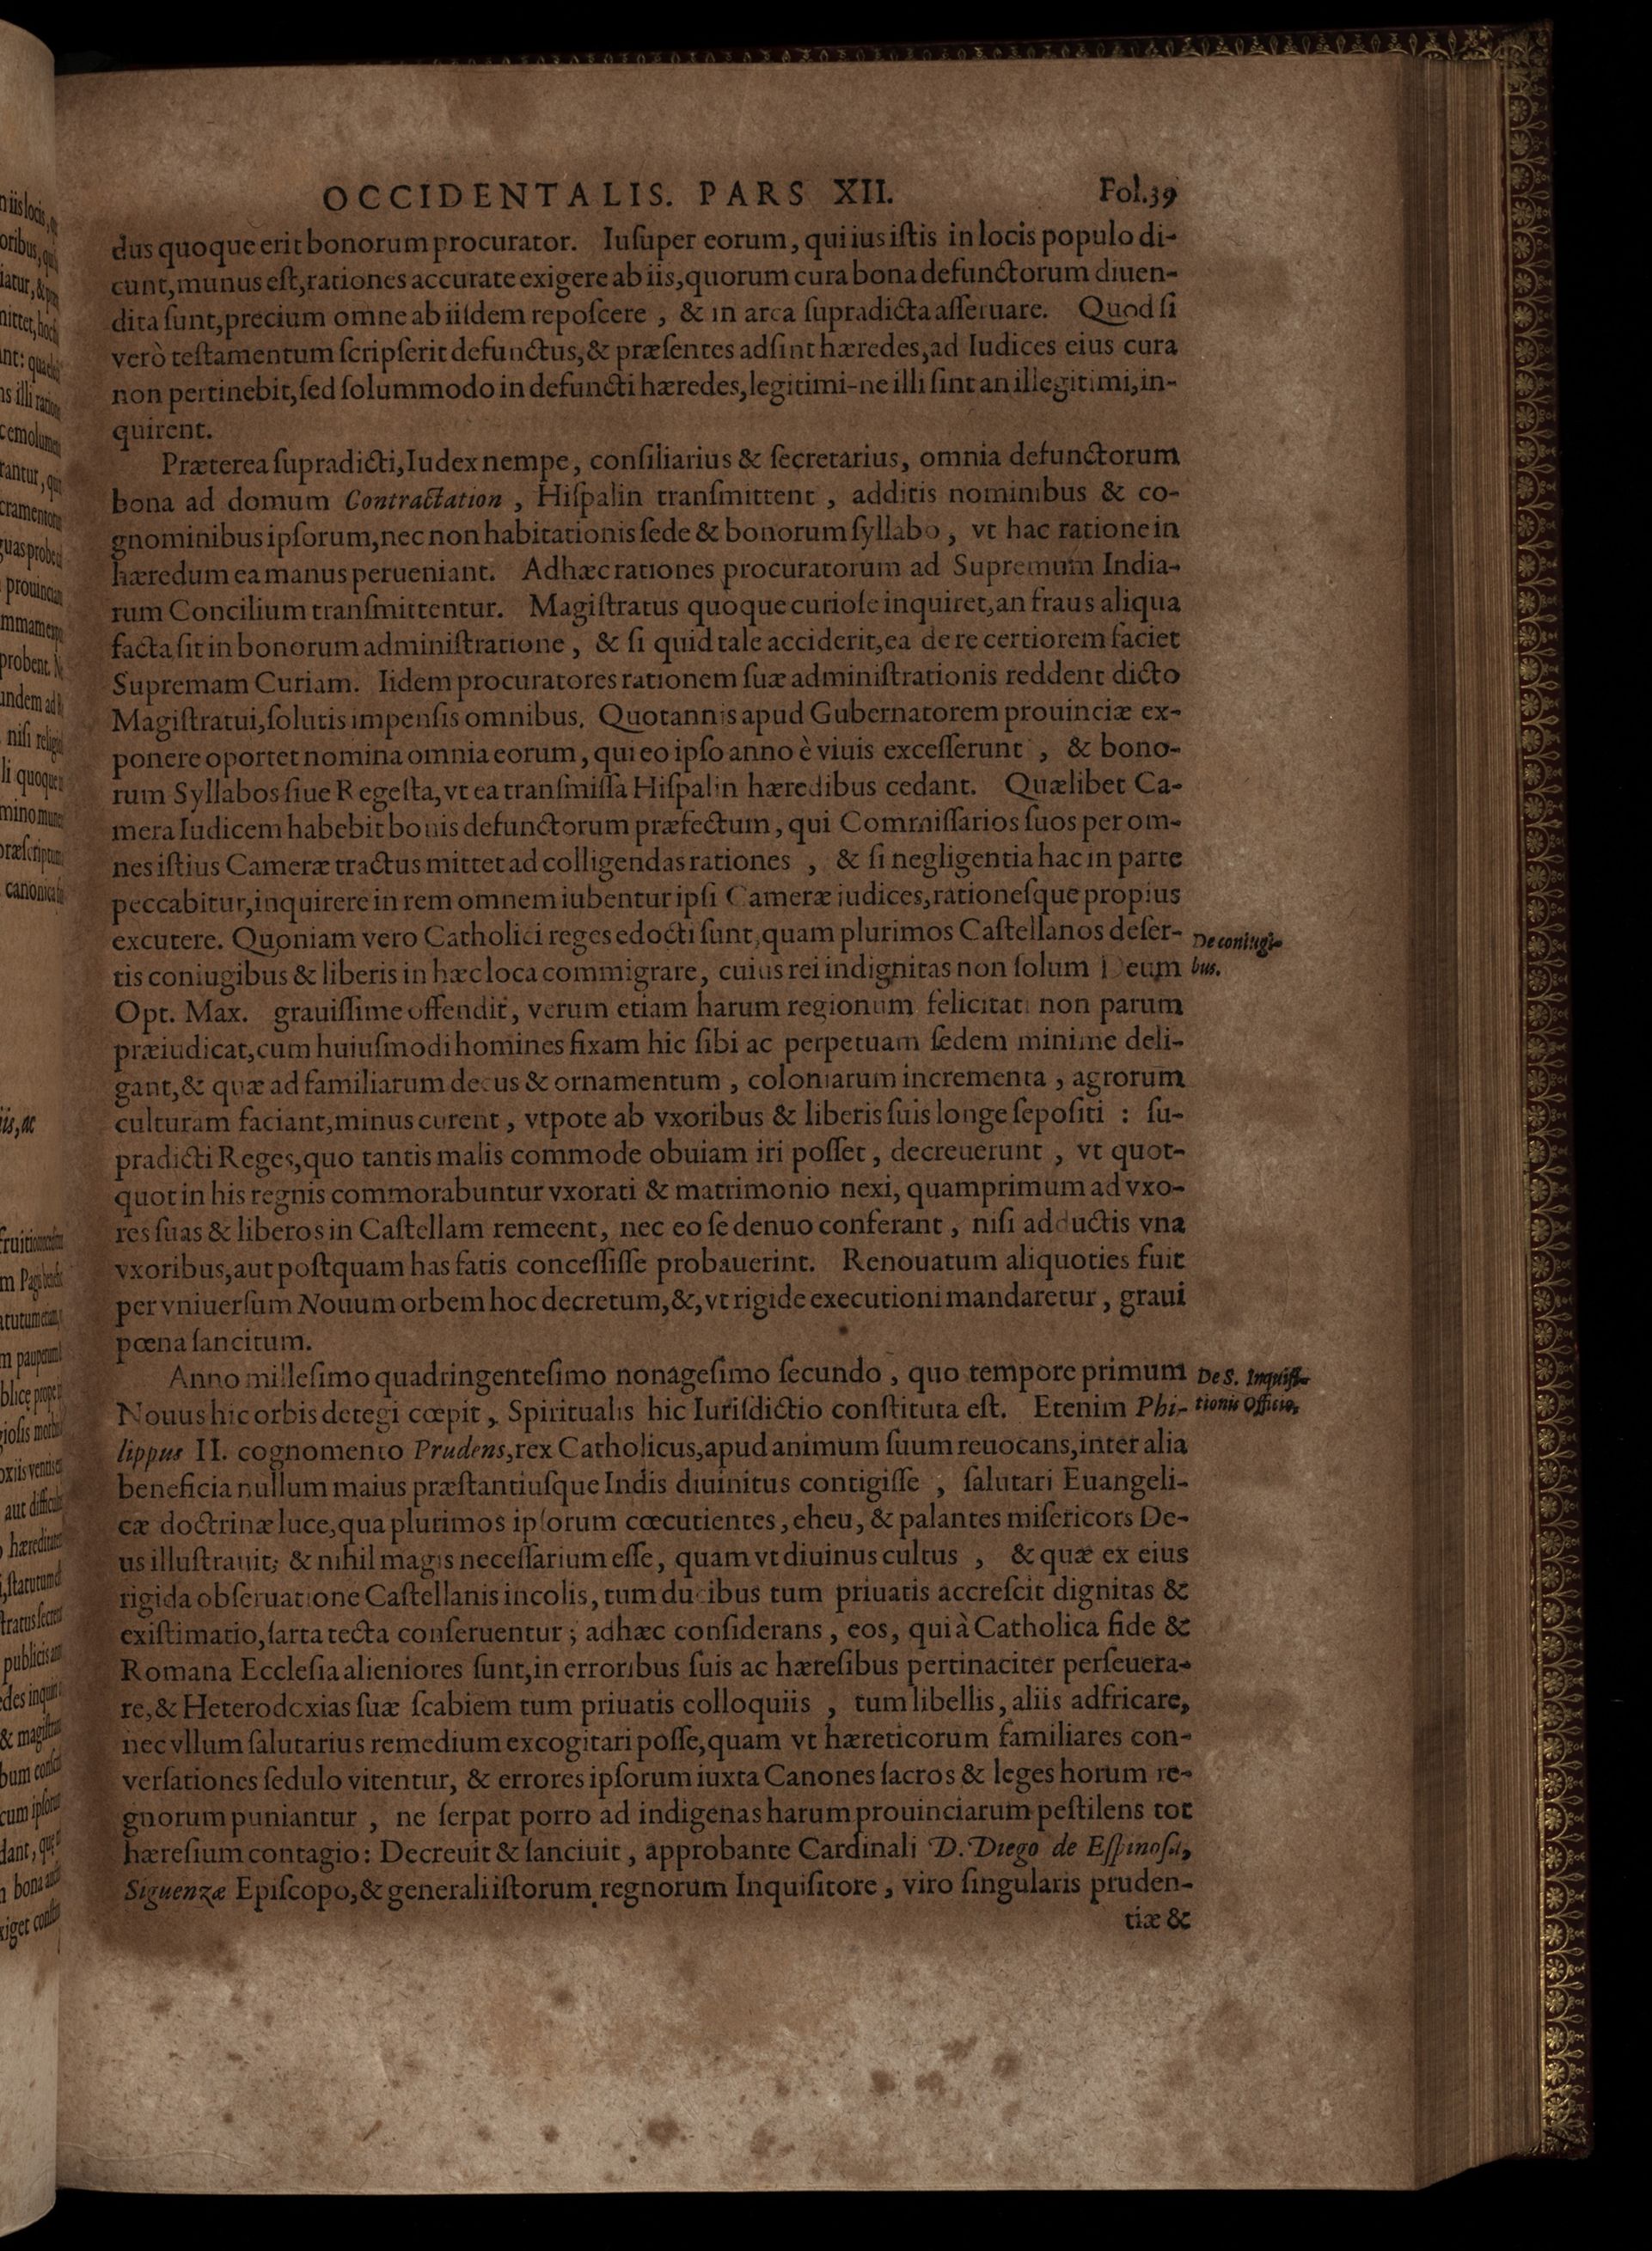 OCCIDENTALIS. PARS XII. Fol.39
dus quoque erit bonorum procurator. Iuſuper eorum, qui ius iſtis in locis populo di-
cunt, munus eſt, rationes accurate exigere ab iis, quorum cura bona defunctorum diuen-
dita ſunt, precium omne ab iiſdem repoſcere , & in arca ſupradicta aſſeruare. Quod ſi
verò teſtamentum ſcripſerit defunctus, & præſentes adſint hæredes, ad Iudices eius cura
non pertinebit, ſed ſolummodo in defuncti hæredes, legitimi-ne illi ſint an illegitimi, in-
quirent.
Præterea ſupradicti, Iudex nempe, conſiliarius & ſecretarius, omnia defunctorum
bona ad domum Contractation , Hiſpalin tranſmittent , additis nominibus & co-
gnominibus ipſorum, nec non habitationis ſede & bonorum ſyllabo , vt hac ratione in
hæredum ea manus perueniant. Adhæc rationes procuratorum ad Supremum India-
rum Concilium tranſmittentur. Magiſtratus quoque curioſe inquiret, an fraus aliqua
facta ſit in bonorum adminiſtratione , & ſi quid tale acciderit, ea de re certiorem faciet
Supremam Curiam. Iidem procuratores rationem ſuæ adminiſtrationis reddent dicto
Magiſtratui, ſolutis impenſis omnibus. Quotannis apud Gubernatorem prouinciæ ex-
ponere oportet nomina omnia eorum, qui eo ipſo anno è viuis exceſſerunt , & bono-
rum Syllabos ſiue Regeſta, vt ea tranſmiſſa Hiſpalin hæredibus cedant. Quælibet Ca-
mera Iudicem habebit bonis defunctorum præfectum, qui Commiſſarios ſuos per om-
nes iſtius Cameræ tractus mittet ad colligendas rationes , & ſi negligentia hac in parte
peccabitur, inquirere in rem omnem iubentur ipſi Cameræ iudices, rationeſque propius
excutere. Quoniam vero Catholici reges edocti ſunt, quam plurimos Caſtellanos deſer-
De coniugi-
tis coniugibus & liberis in hæc loca commigrare, cuius rei indignitas non ſolum Deum
bus.
Opt. Max. grauiſſime offendit, verum etiam harum regionum felicitati non parum
præiudicat, cum huiuſmodi homines fixam hic ſibi ac perpetuam ſedem minime deli-
gant, & quæ ad familiarum decus & ornamentum , coloniarum incrementa , agrorum
culturam faciant, minus curent , vtpote ab vxoribus & liberis ſuis longe ſepoſiti : ſu-
pradicti Reges, quo tantis malis commode obuiam iri poſſet , decreuerunt , vt quot-
quot in his regnis commorabuntur vxorati & matrimonio nexi, quamprimum ad vxo-
res ſuas & liberos in Caſtellam remeent, nec eo ſe denuo conferant , niſi adductis vna
vxoribus, aut poſtquam has fatis conceſſiſſe probauerint. Renouatum aliquoties fuit
per vniuerſum Nouum orbem hoc decretum, &, vt rigide executioni mandaretur , graui
pœna ſancitum.
Anno milleſimo quadringenteſimo nonageſimo ſecundo , quo tempore primum
De S. Inquiſi-
Nouus hic orbis detegi cœpit , Spiritualis hic Iuriſdictio conſtituta eſt. Etenim Phi-
tionis Officio.
lippus II. cognomento Prudens, rex Catholicus, apud animum ſuum reuocans, inter alia
beneficia nullum maius præſtantiuſque Indis diuinitus contigiſſe , ſalutari Euangeli-
cæ doctrinæ luce, qua plurimos ipſorum cœcutientes, eheu, & palantes miſericors De-
us illuſtrauit; & nihil magis neceſſarium eſſe, quam vt diuinus cultus , & quæ ex eius
rigida obſeruatione Caſtellanis incolis, tum ducibus tum priuatis accreſcit dignitas &
exiſtimatio, ſarta tecta conſeruentur ; adhæc conſiderans , eos, qui à Catholica fide &
Romana Eccleſia alieniores ſunt, in erroribus ſuis ac hæreſibus pertinaciter perſeuera-
re, & Heterodoxias ſuæ ſcabiem tum priuatis colloquiis , tum libellis, aliis adfricare,
nec vllum ſalutarius remedium excogitari poſſe, quam vt hæreticorum familiares con-
verſationes ſedulo vitentur, & errores ipſorum iuxta Canones ſacros & leges horum re-
gnorum puniantur , ne ſerpat porro ad indigenas harum prouinciarum peſtilens tot
hæreſium contagio: Decreuit & ſanciuit , approbante Cardinali D. Diego de Eſpinoſa,
Siguenzæ Epiſcopo, & generali iſtorum regnorum Inquiſitore , viro ſingularis pruden-
tiæ &